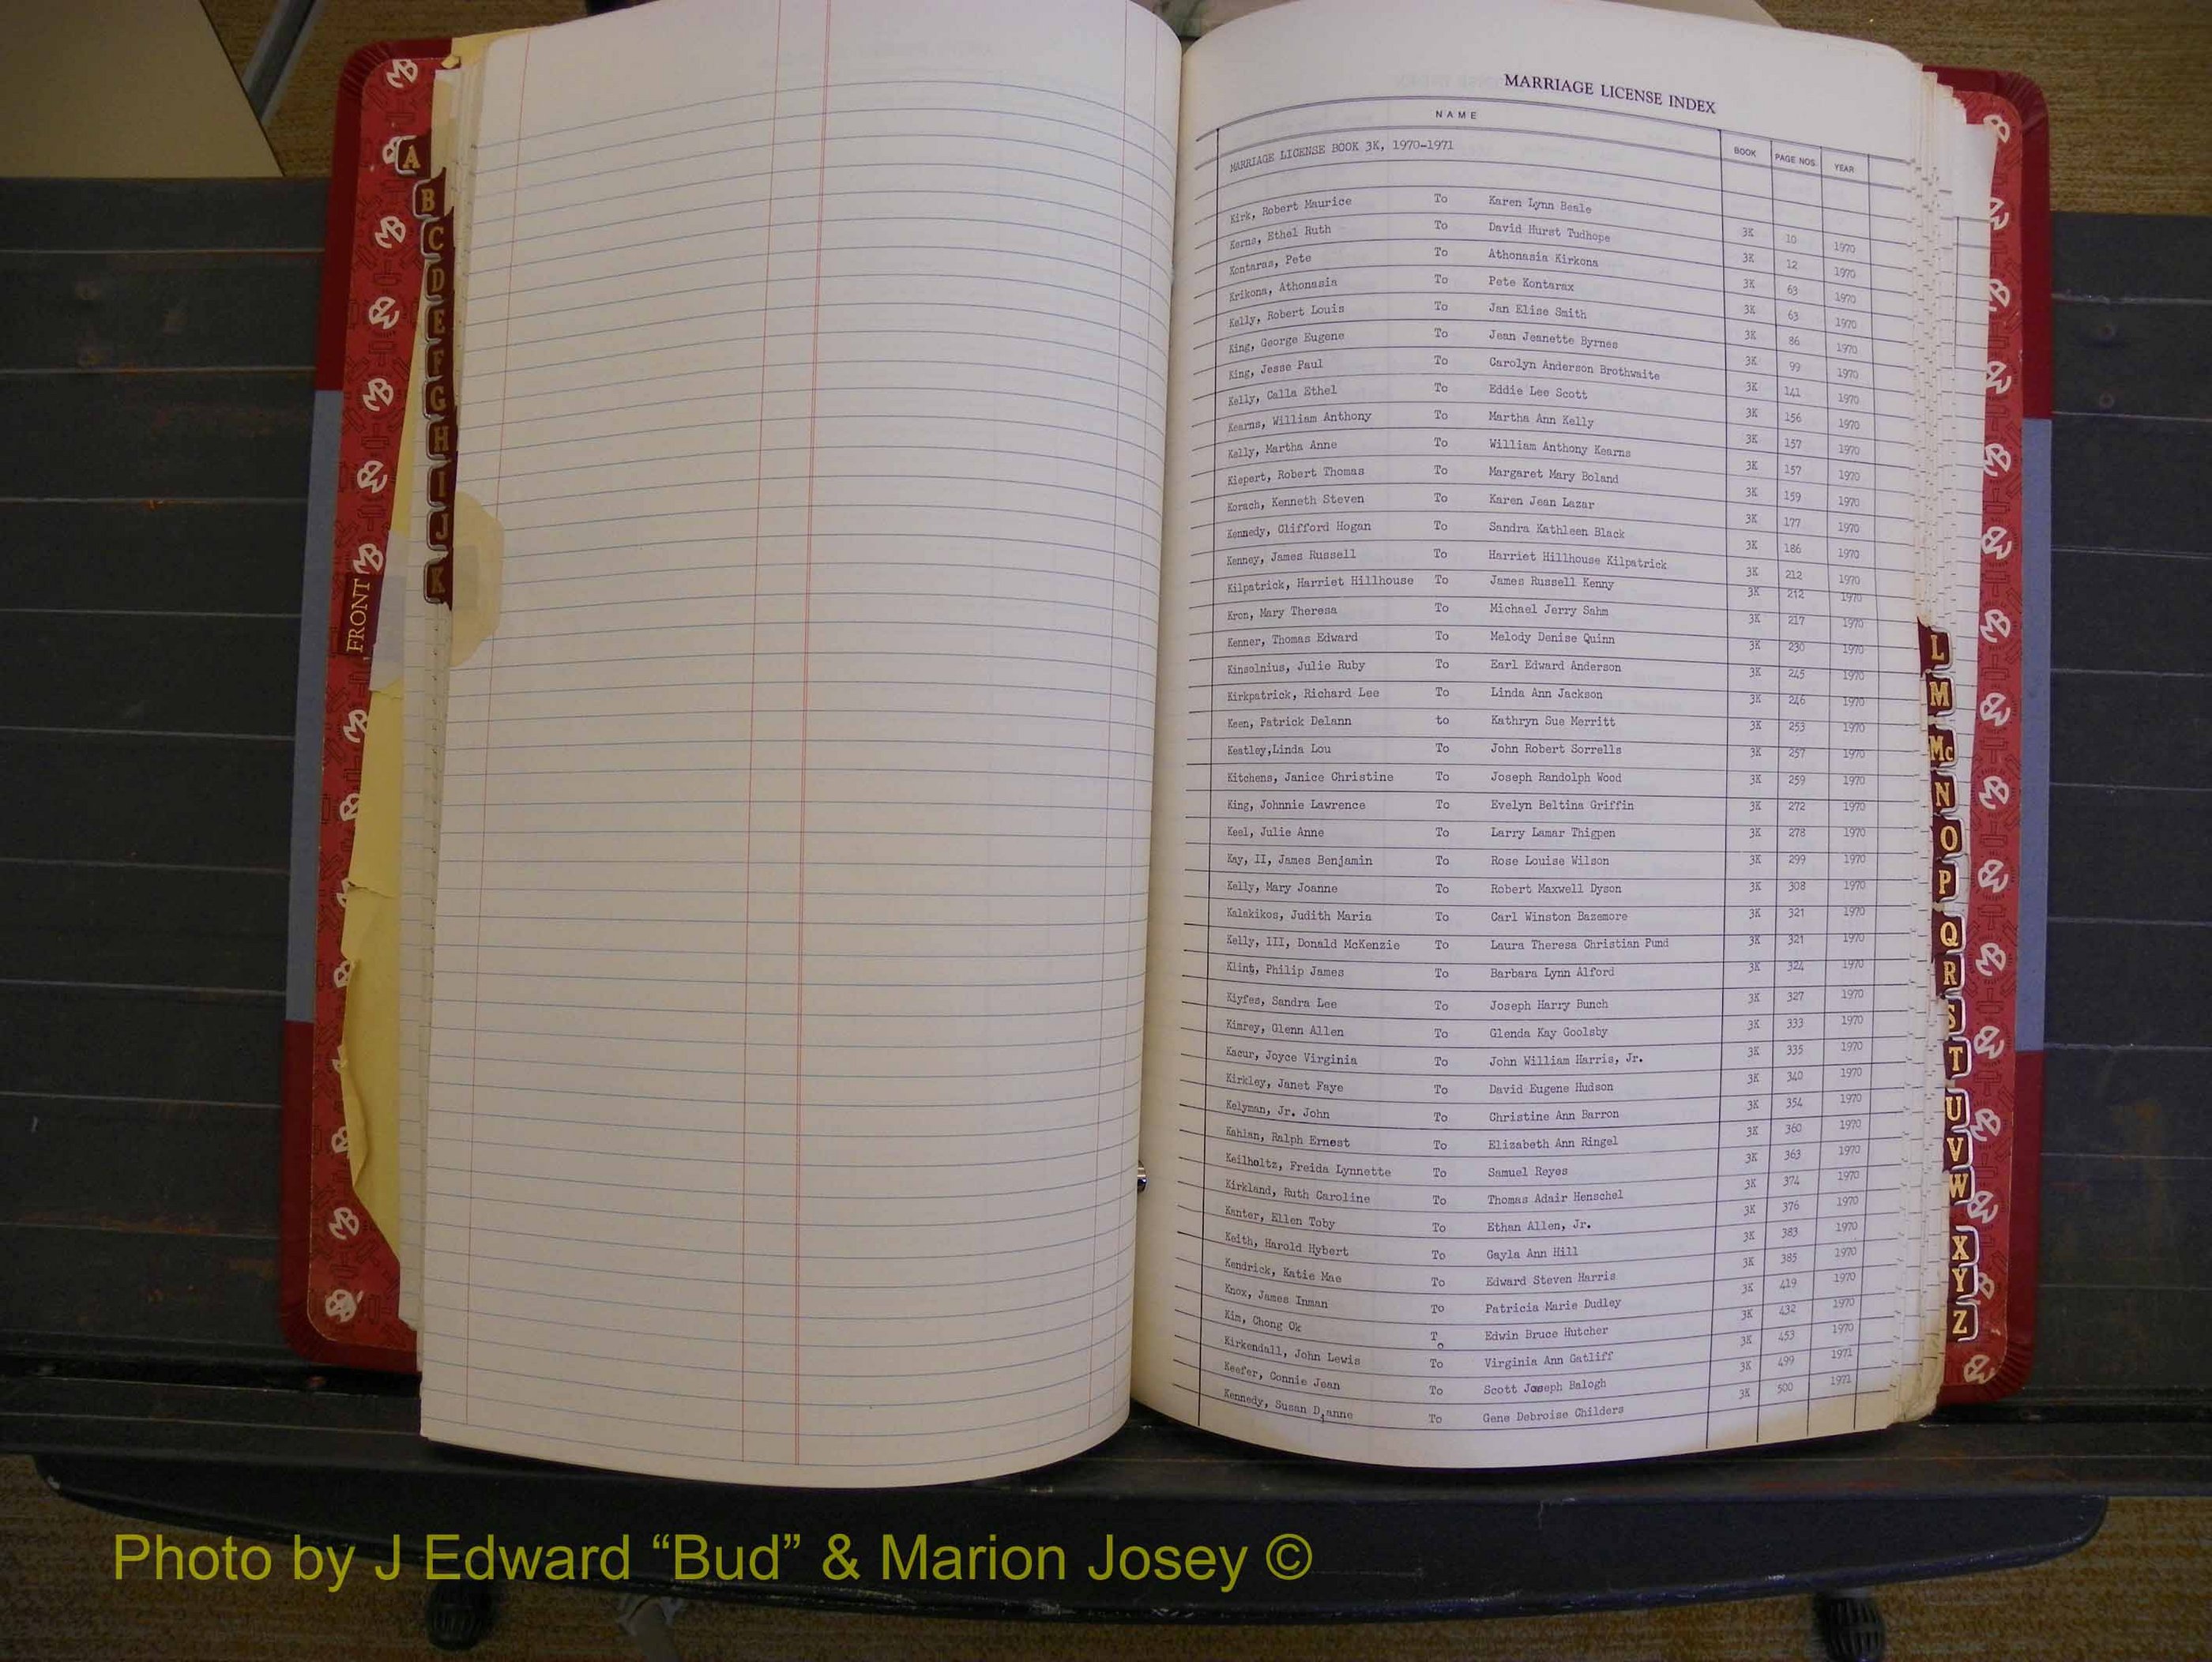 MARRIAGE LICENSE INDEX
NAME BOOK PAGE NOS. YEAR
MARRIAGE LICENSE BOOK 3K, 1970-1971
Kirk, Robert Maurice To Karen Lynn Beale 3K 10 1970
Kerns, Ethel Ruth To David Hurst Tudhope 3K 12 1970
Kontaras, Pete To Athonasia Kirkona 3K 63 1970
Krikona, Athonasia To Pete Kontarax 3K 63 1970
Kelly, Robert Louis To Jan Elise Smith 3K 86 1970
King, George Eugene To Jean Jeanette Byrnes 3K 99 1970
King, Jesse Paul To Carolyn Anderson Brothwaite 3K 141 1970
Kelly, Calla Ethel To Eddie Lee Scott 3K 156 1970
Kearns, William Anthony To Martha Ann Kelly 3K 157 1970
Kelly, Martha Anne To William Anthony Kearns 3K 157 1970
Kiepert, Robert Thomas To Margaret Mary Boland 3K 159 1970
Korach, Kenneth Steven To Karen Jean Lazar 3K 177 1970
Kennedy, Clifford Hogan To Sandra Kathleen Black 3K 186 1970
Kenney, James Russell To Harriet Hillhouse Kilpatrick 3K 212 1970
Kilpatrick, Harriet Hillhouse To James Russell Kenny 3K 212 1970
Kron, Mary Theresa To Michael Jerry Sahm 3K 217 1970
Kenner, Thomas Edward To Melody Denise Quinn 3K 230 1970
Kinsolnius, Julie Ruby To Earl Edward Anderson 3K 245 1970
Kirkpatrick, Richard Lee To Linda Ann Jackson 3K 246 1970
Keen, Patrick Delann to Kathryn Sue Merritt 3K 253 1970
Keatley,Linda Lou To John Robert Sorrells 3K 257 1970
Kitchens, Janice Christine To Joseph Randolph Wood 3K 259 1970
King, Johnnie Lawrence To Evelyn Beltina Griffin 3K 272 1970
Keel, Julie Anne To Larry Lamar Thigpen 3K 278 1970
Kay, II, James Benjamin To Rose Louise Wilson 3K 299 1970
Kelly, Mary Joanne To Robert Maxwell Dyson 3K 308 1970
Kalakikos, Judith Maria To Carl Winston Bazemore 3K 321 1970
Kelly, III, Donald McKenzie To Laura Theresa Christian Pund 3K 321 1970
Klint, Philip James To Barbara Lynn Alford 3K 324 1970
Kiyfes, Sandra Lee To Joseph Harry Bunch 3K 327 1970
Kimrey, Glenn Allen To Glenda Kay Goolsby 3K 333 1970
Kacur, Joyce Virginia To John William Harris, Jr. 3K 335 1970
Kirkley, Janet Faye To David Eugene Hudson 3K 340 1970
Kelyman, Jr. John To Christine Ann Barron 3K 354 1970
Kahlan, Ralph Ernest To Elizabeth Ann Ringel 3K 360 1970
Keilholtz, Freida Lynnette To Samuel Reyes 3K 363 1970
Kirkland, Ruth Caroline To Thomas Adair Henschel 3K 374 1970
Kanter, Ellen Toby To Ethan Allen, Jr. 3K 376 1970
Keith, Harold Hybert To Gayla Ann Hill 3K 383 1970
Kendrick, Katie Mae To Edward Steven Harris 3K 385 1970
Knox, James Inman To Patricia Marie Dudley 3K 419 1970
Kim, Chong Ok To Edwin Bruce Hutcher 3K 432 1970
Kirkendall, John Lewis To Virginia Ann Gatliff 3K 453 1970
Keefer, Connie Jean To Scott Joseph Balogh 3K 499 1971
Kennedy, Susan Dianne To Gene Debroise Childers 3K 500 1971
A
B
C
D
E
F
G
H
I
J
K
FRONT
L
M
Mc
N
O
P
Q
R
S
T
U
V
W
X
Y
Z
Photo by J Edward “Bud” & Marion Josey ©